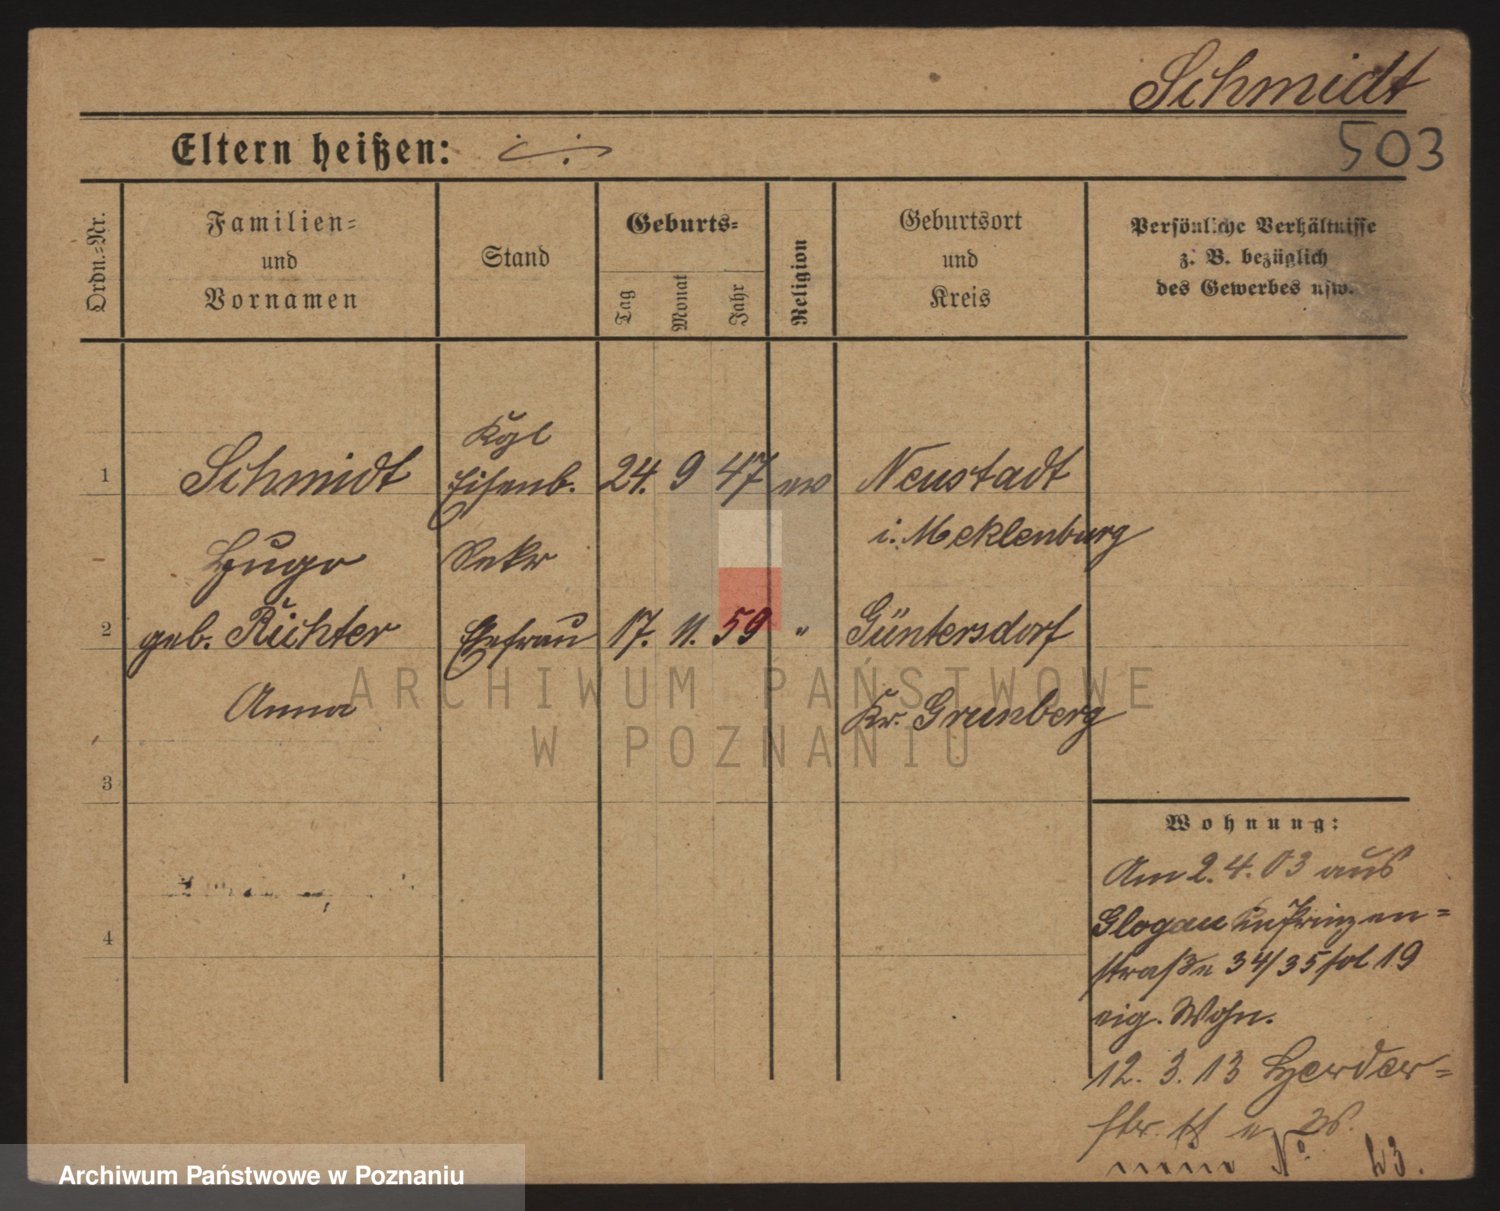 Schmidt
503
Eltern heißen:
Ordn.-Nr.
Familien-
und
Vornamen
Stand
Geburts-
Tag
Monat
Jahr
Religion
Geburtsort
und
Kreis
Persönliche Verhältnisse
z. B. bezüglich
des Gewerbes usw.
1
Schmidt
Kgl
Eisenb.
24. 9 47
ev
Neustadt
i. Mecklenburg
Hugo
Sekr
2
geb. Richter
Ehefrau
17. 11. 59
"
Güntersdorf
Anna
Kr. Grunberg
3
4
Wohnung:
Am 2. 4. 03 aus
Glogau Prinzen=
straße 34/35 19
eig. Wohn.
12. 3. 13 Herder=
str.
neue No 23.
ARCHIWUM PAŃSTWOWE
W POZNANIU
Archiwum Państwowe w Poznaniu